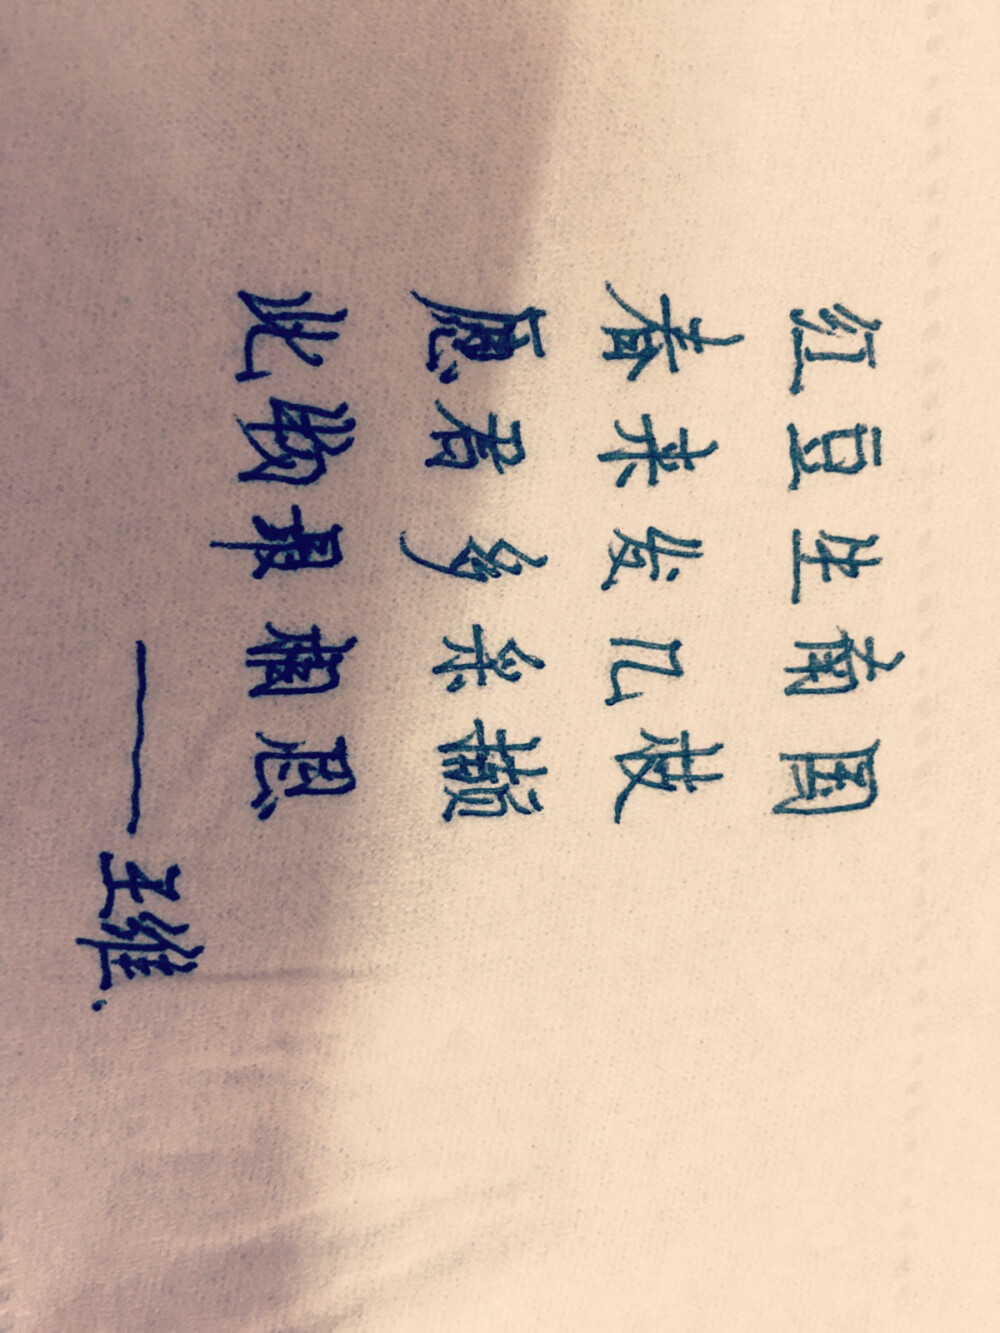 红豆生南国
春来发几枝
愿君多采撷
此物最相思
——王维.